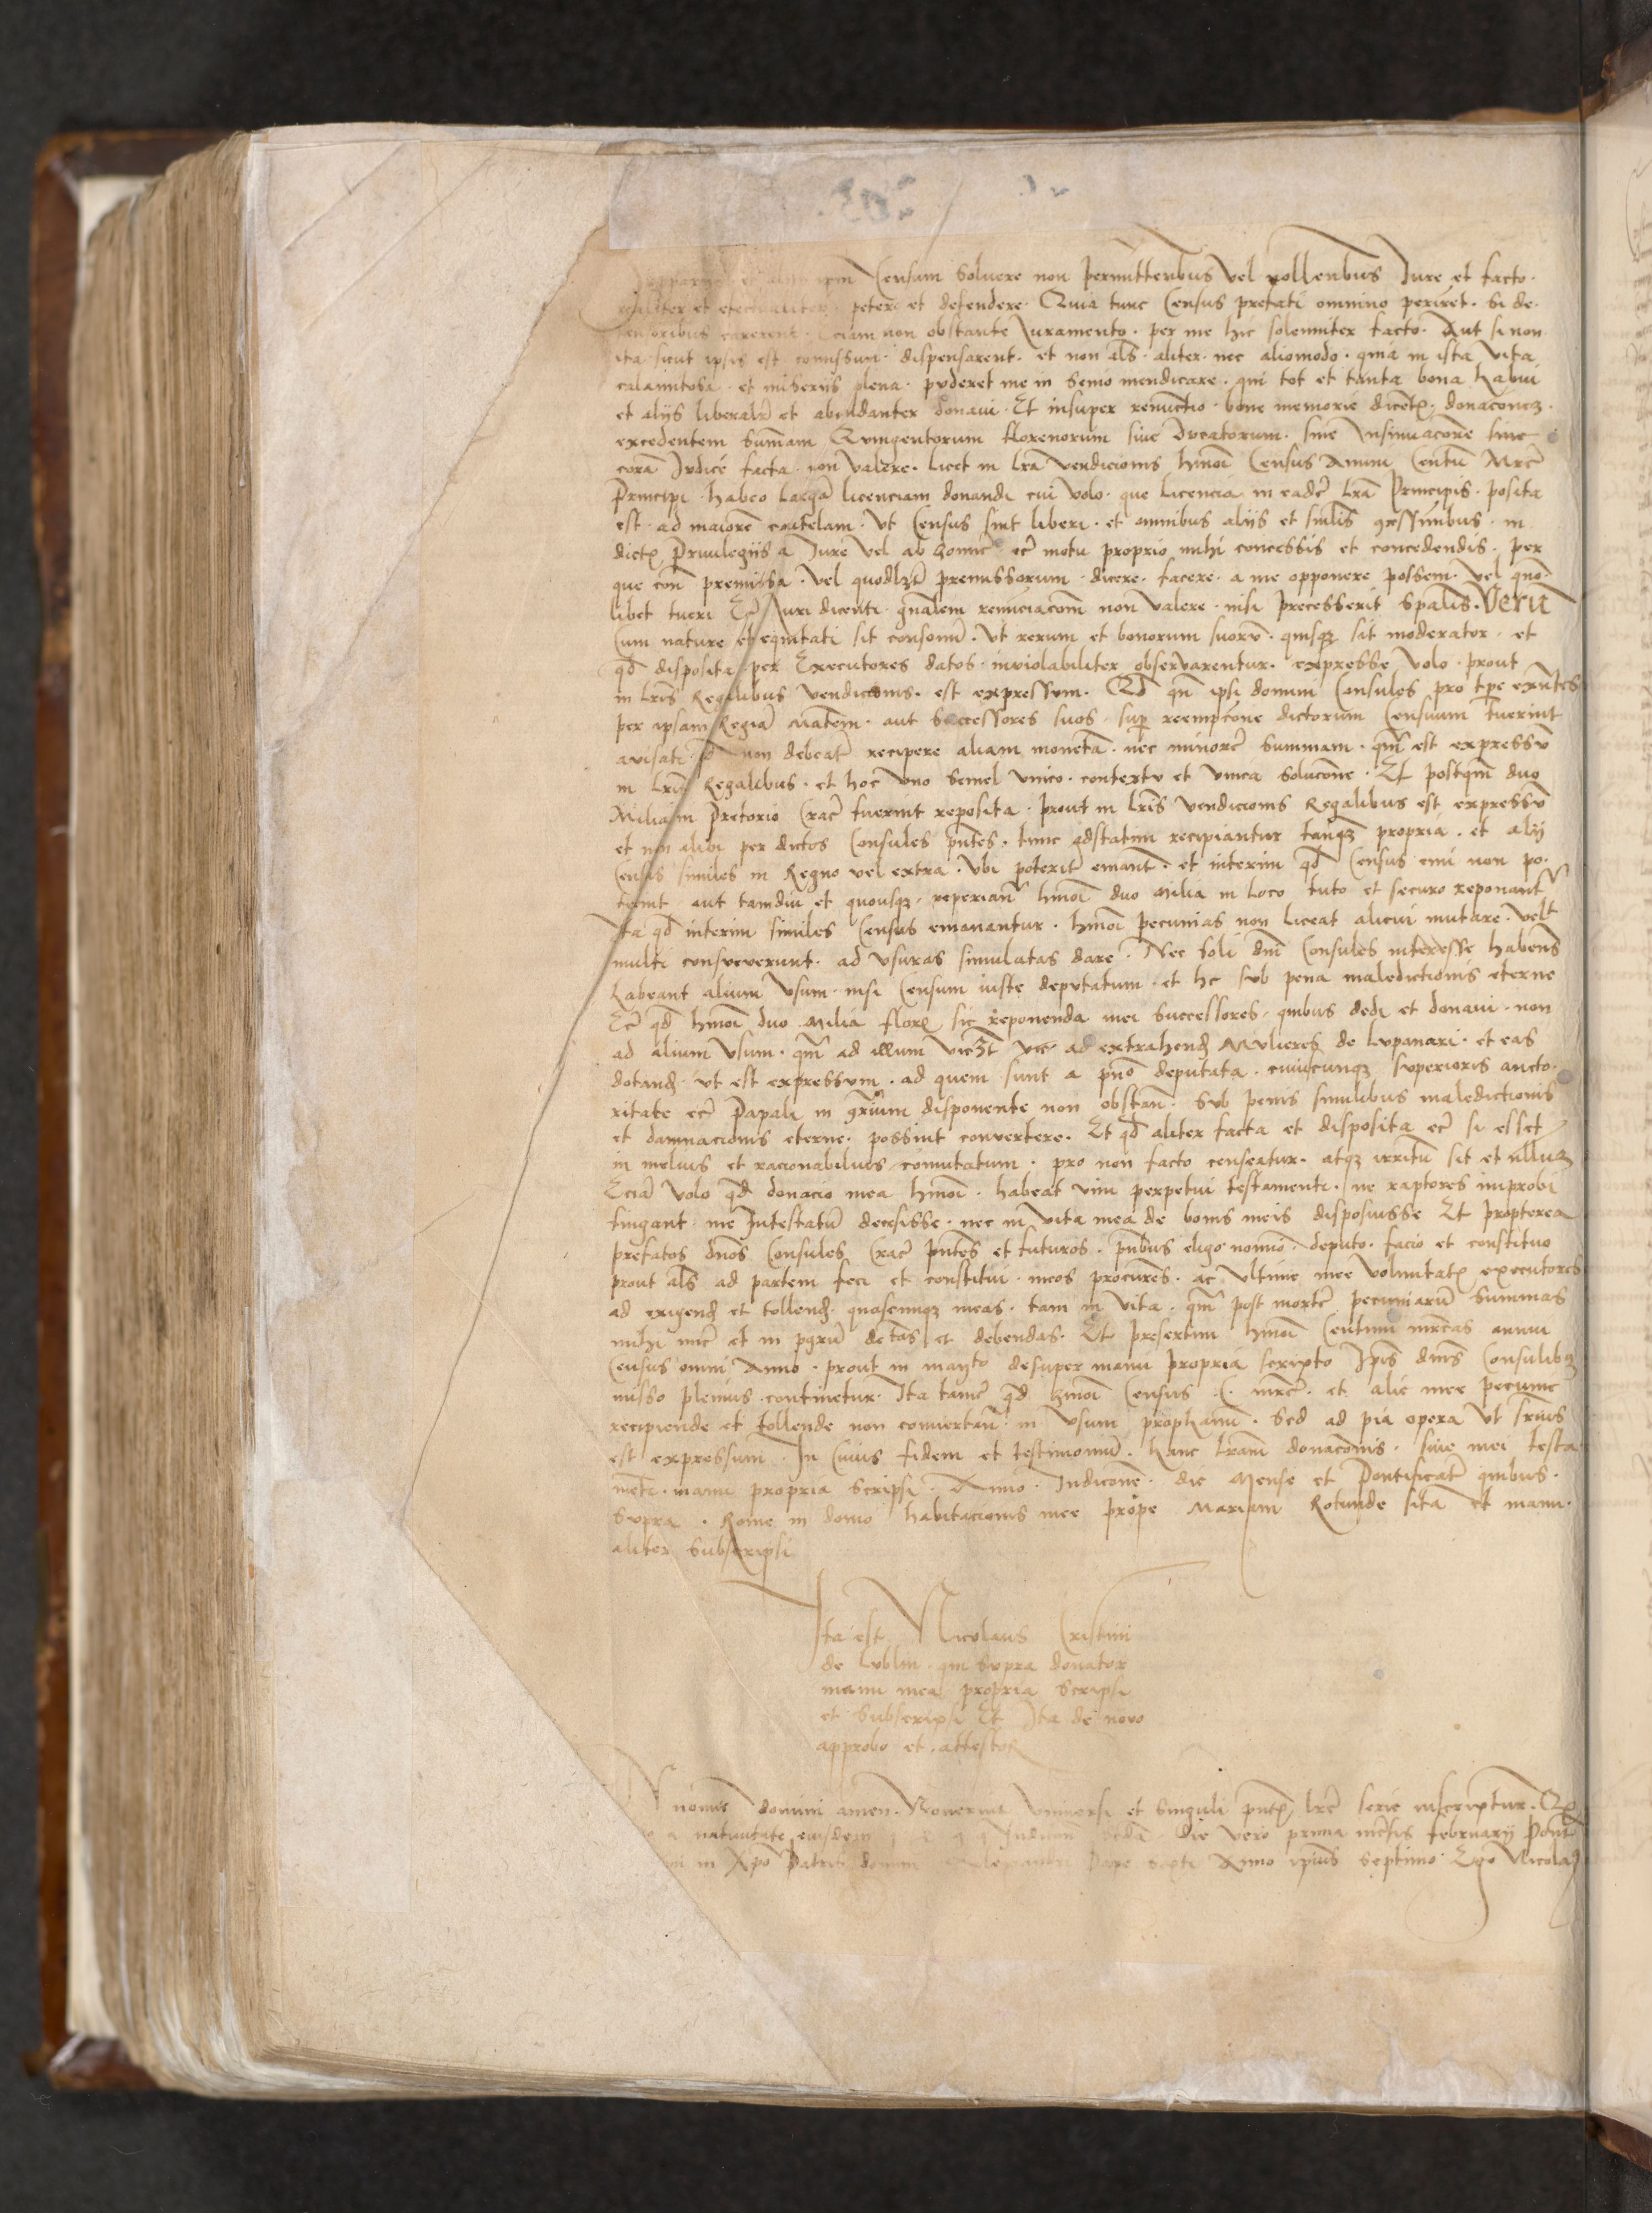 Censum Soluere non permittentibus Vel nollentibus Jure et facto.
petere et defendere. Quia tunc Census prefati omnino periret. Si de-
carerent. Eciam non obstante Juramento. per me hic solenniter facto. Aut si non
ita sicut ipsis est comissum. dispensarent. et non als. aliter. nec aliomodo. quia in ista Vita
calamitosa. et miseriis plena. puderet me in Senio mendicare. qui tot et tanta bona habui
et aliis liberalr et abundanter donaui. Et insuper bone memorie donaconez
excedentem Sumam Quingentorum florenorum siue Ducatorum. sine Insinuacone siue
cora Iudice facta. non Valere. licet in lra Vendicionis hmoi Census Annui Centu Mrc
Principi. habeo larga licenciam donandi cui Volo. que licencia in eade lra Principis. posita
est. ad maiore cautelam. Vt Census sint liberi. et omnibus aliis et in
Priuilegiis a Jure Vel ab homie ec motu proprio mihi concessis et concedendis. per
que premissa. Vel quodlzt premissorum. dicere. facere. a me opponere possem. Vel quo-
libet tueri Et Juri dicenti. gnalem renuciacom non Valere. nisi precesserit Spalis. Veru
Cum nature et equitati sit consonu. Vt rerum et bonorum suoru. quisqz sit moderator. et
qd disposita per Executores datos. inviolabiliter observarentur. expresse Volo. prout
in lris Regalibus Vendicionis. est expressum. Qd qn ipsi domini Consules pro tpe exntes
per ipsam Regia Matem. aut Successores suos. sup reempcone dictorum Censuum fuerint
auisati. non debeat recipere aliam moneta. nec minore Summam. qm est expressu
in lris Regalibus. et hoc Vno Semel Vnico. contextu et Vnica Solucone. Et postqm duo
Milia in Pretorio Crac fuerint reposita. prout in lris Vendicionis Regalibus est expressu
et non alibi per dictos Consules pntes. tunc adstatim recipiantur tanqz propria. et alij
Census similes in Regno Vel extra. Vbi poterit emant. et interim qd Census emi non po-
terint aut tamdiu et quousqz. reperiant hmoi duo Milia in loco tuto et securo reponant
Ita qd interim similes Census emanantur. hmoi pecunias non liceat alicui mutare. Velt
multi consueverunt. ad Vsuras simulatas dare. Nec soli dni Consules interesse habens
habeant alium Vsum. nisi Censum iuste deputatum. et hc sub pena maledictionis eterne
Ec qd hmoi duo Milia flor sic reponenda mei Successores. quibus dedi et donaui. non
ad alium Vsum. qm ad illum ad extrahend Mulieres de Lupanari. et eas
dotand. Vt est expressum. ad quem sunt a deputata. cuiuscunqz superioris aucto-
ritate ec Papali in disponente non obstan. Sub penis similibus maledictionis
et damnacionis eterne. possint convertere. Et qd aliter facta et disposita ec si esset
in melius et racionabilius comutatum. pro non facto censeatur. atqz irritu sit et nlluz
Ecia Volo qd donacio mea hmoi. habeat vim perpetui testamenti. ne raptores improbi
fingant me Intestatu decesisse. nec in Vita mea de bonis meis disposuisse Et propterea
prefatos dnos Consules Crac pntes et futuros. pntibus eligo nomio. deputo. facio et constituo
prout als ad partem feci et constitui. meos procures. ac Vltime mee Voluntatis executores
ad exigend et tollend. quascunqz meas. tam in Vita. qm post morte pecuniaru Summas
mihi nuc et in debitas et debendas. Et presertim hmoi Centum mrcas annui
Census omni Anno. prout in desuper manu propria scripto Ipis dnis Consulibz
misso plenius continetur. Ita tame qd hmoi Census C. mrc. et alie mee pecunie
recipiende et tollende non convertant in Vsum prophanu. Sed ad pia opera Vt
est expressum. In Cuius fidem et testimoniu. hanc lram donaconis. siue mei testa-
meti. manu propria Scripsi. Anno. Indicione. die Mense et Pontificat quibus.
Supra. Rome in domo habitacionis mee prope Mariam Rotunde sita et manu-
aliter Subscripsi
Ita est Nicolaus Cristini
de Lublin qui Supra donator
manu mea propria Scripsi
et Subscripsi Et Ita de novo
approbo et attestor
nomie domini amen. Noverint Vniversi et Singuli lre serie
a natiuitate eiusdem Die vero prima mensis februarij Pont
in Xpo Patris domini Alexandri Pape Sexti Anno ipius Septimo Ego Nicola